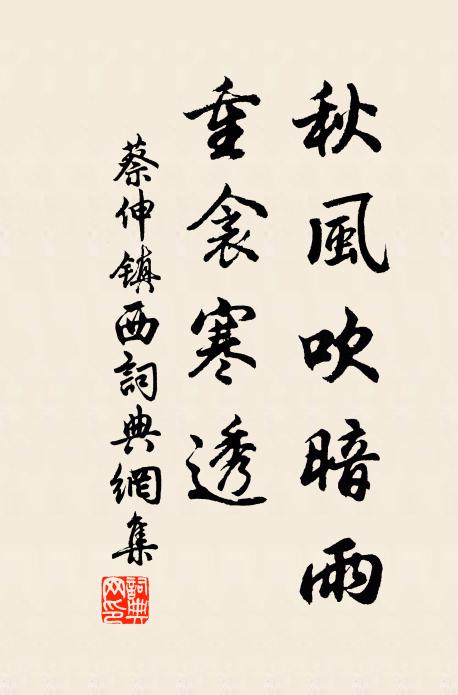 秋風吹暗雨
重衾寒透
蔡伸鎮西詞典網集
詞典網印